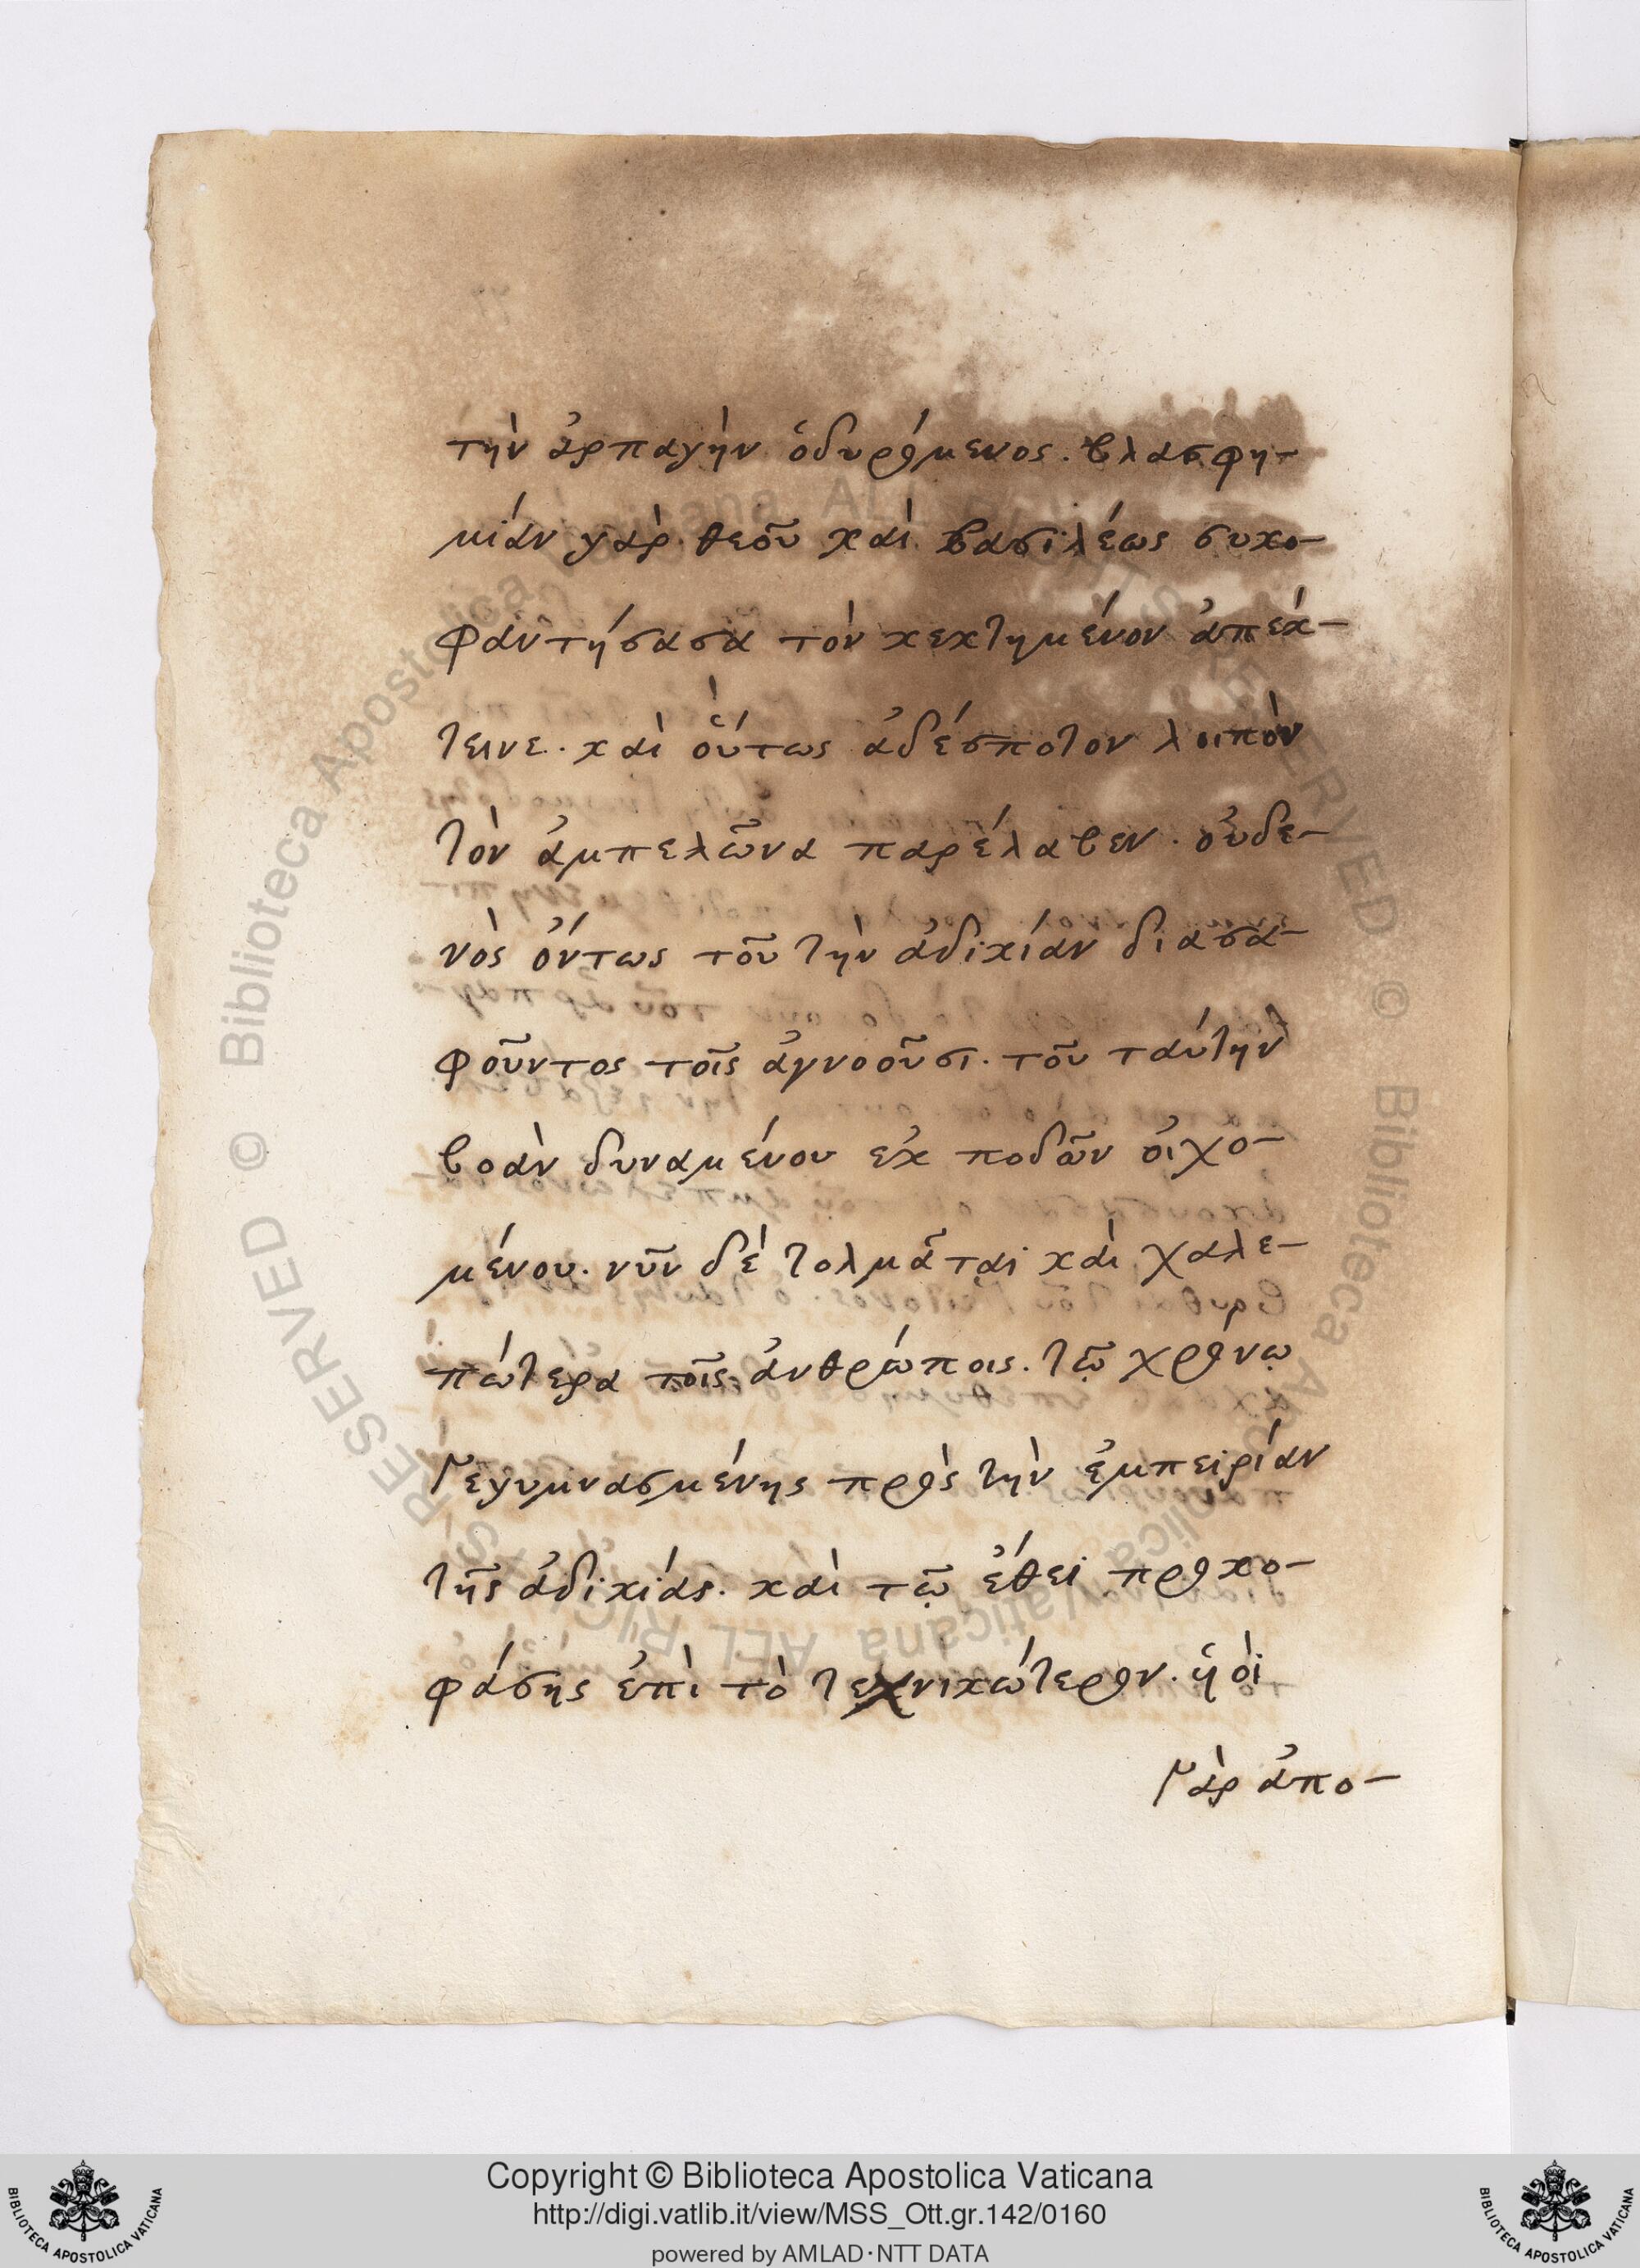 τὴν ἁρπαγὴν ὀδυρόμενος. βλασφη-
μίαν γὰρ θεοῦ καὶ βασιλέως συκο-
φαντήσασα τὸν κεκτημένον ἀπέκ-
τεινε. καὶ οὕτως ἀδέσποτον λοιπὸν
τὸν ἀμπελῶνα παρέλαβεν. οὐδε-
νὸς ὄντως τοῦ τὴν ἀδικίαν διασα-
φοῦντος τοῖς ἀγνοοῦσι. τοῦ ταύτην
βοᾶν δυναμένου ἐκ ποδῶν οἰχο-
μένου. νῦν δὲ τολμᾶται καὶ χαλε-
πώτερα τοῖς ἀνθρώποις. τῷ χρόνῳ
γεγυμνασμένης πρὸς τὴν ἐμπειρίαν
τῆς ἀδικίας. καὶ τῷ ἔθει προκο-
φάσης ἐπὶ τὸ τεχνικώτερον. ἢ οἱ
γὰρ ἀπο-
Copyright © Biblioteca Apostolica Vaticana
http://digi.vatlib.it/view/MSS_Ott.gr.142/0160
powered by AMLAD·NTT DATA
BIBLIOTECA APOSTOLICA VATICANA
BIBLIOTECA APOSTOLICA VATICANA